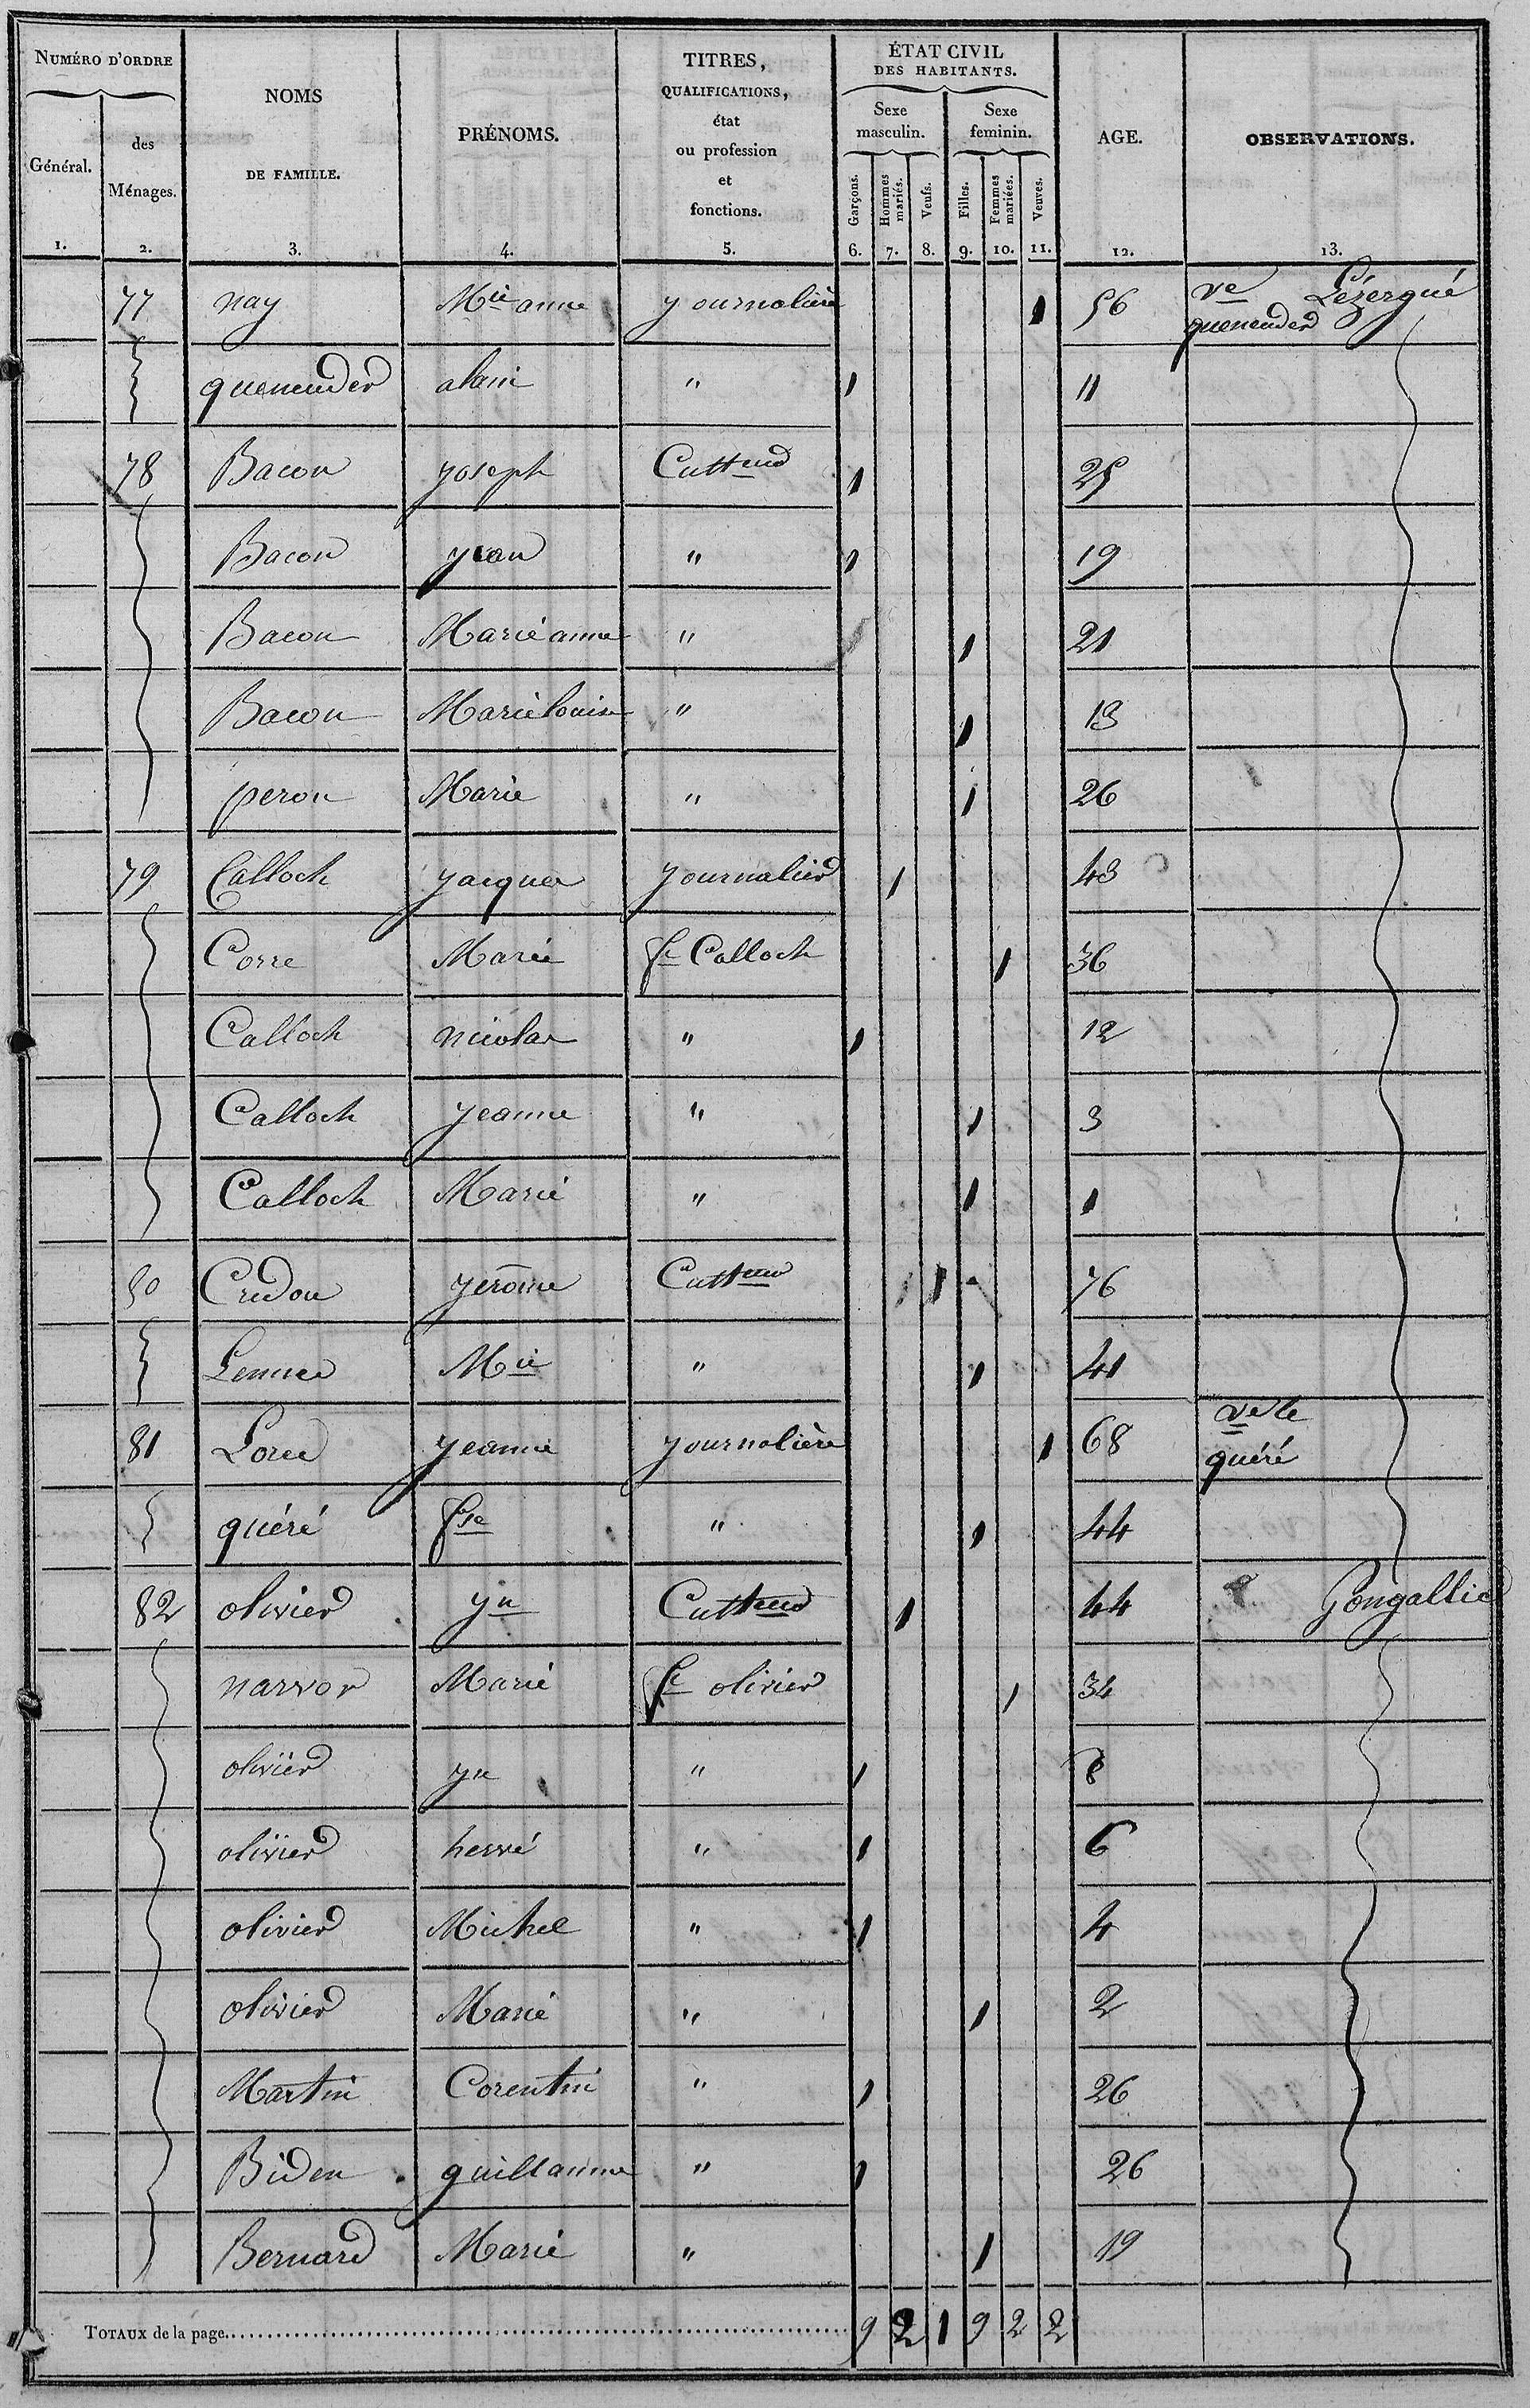 NUMÉRO D'ORDRE
Général.
1.
des
Ménages.
2.
NOMS
DE FAMILLE.
3.
PRÉNOMS.
4.
TITRES,
QUALIFICATIONS,
état
ou profession
et
fonctions.
5.
ÉTAT CIVIL
DES HABITANTS.
Sexe
masculin.
Sexe
feminin.
Garçons.
6.
Hommes
mariés.
7.
Veufs.
8.
Filles.
9.
Femmes
mariées.
10.
Veuves.
11.
AGE.
12.
OBSERVATIONS.
13.
77 nay Mie anne yournalière 1 56 ve Lézergué
quenender
quenender alain " 1 11
78 Bacon yoseph Cultteur 1 25
Bacon yean " 1 19
Bacon Marie anne " 1 21
Bacon Marie louise " 1 13
peron Marie " 1 26
79 Calloch yacques yournalier 1 43
Corre Marie fe Calloch 1 36
Calloch nicolas " 1 12
Calloch yeanne " 1 3
Calloch Marie " 1 1
80 Credou yerôme Cultteur 1 76
Mie " 1 41
81 yeanne yournalière 1 68 ve le
quéré
quéré fse " 1 44
82 olivier yn Cultteur 1 44 Gongallic
narvor Marie fe olivier 1 34
olivier yn " 1 8
olivier hervé " 1 6
olivier Michel " 1 4
olivier Marie " 1 2
Martin Corentin " 1 26
Biden guillaume " 1 26
Bernard Marie " 1 19
TOTAUX de la page 9 2 1 9 2 2